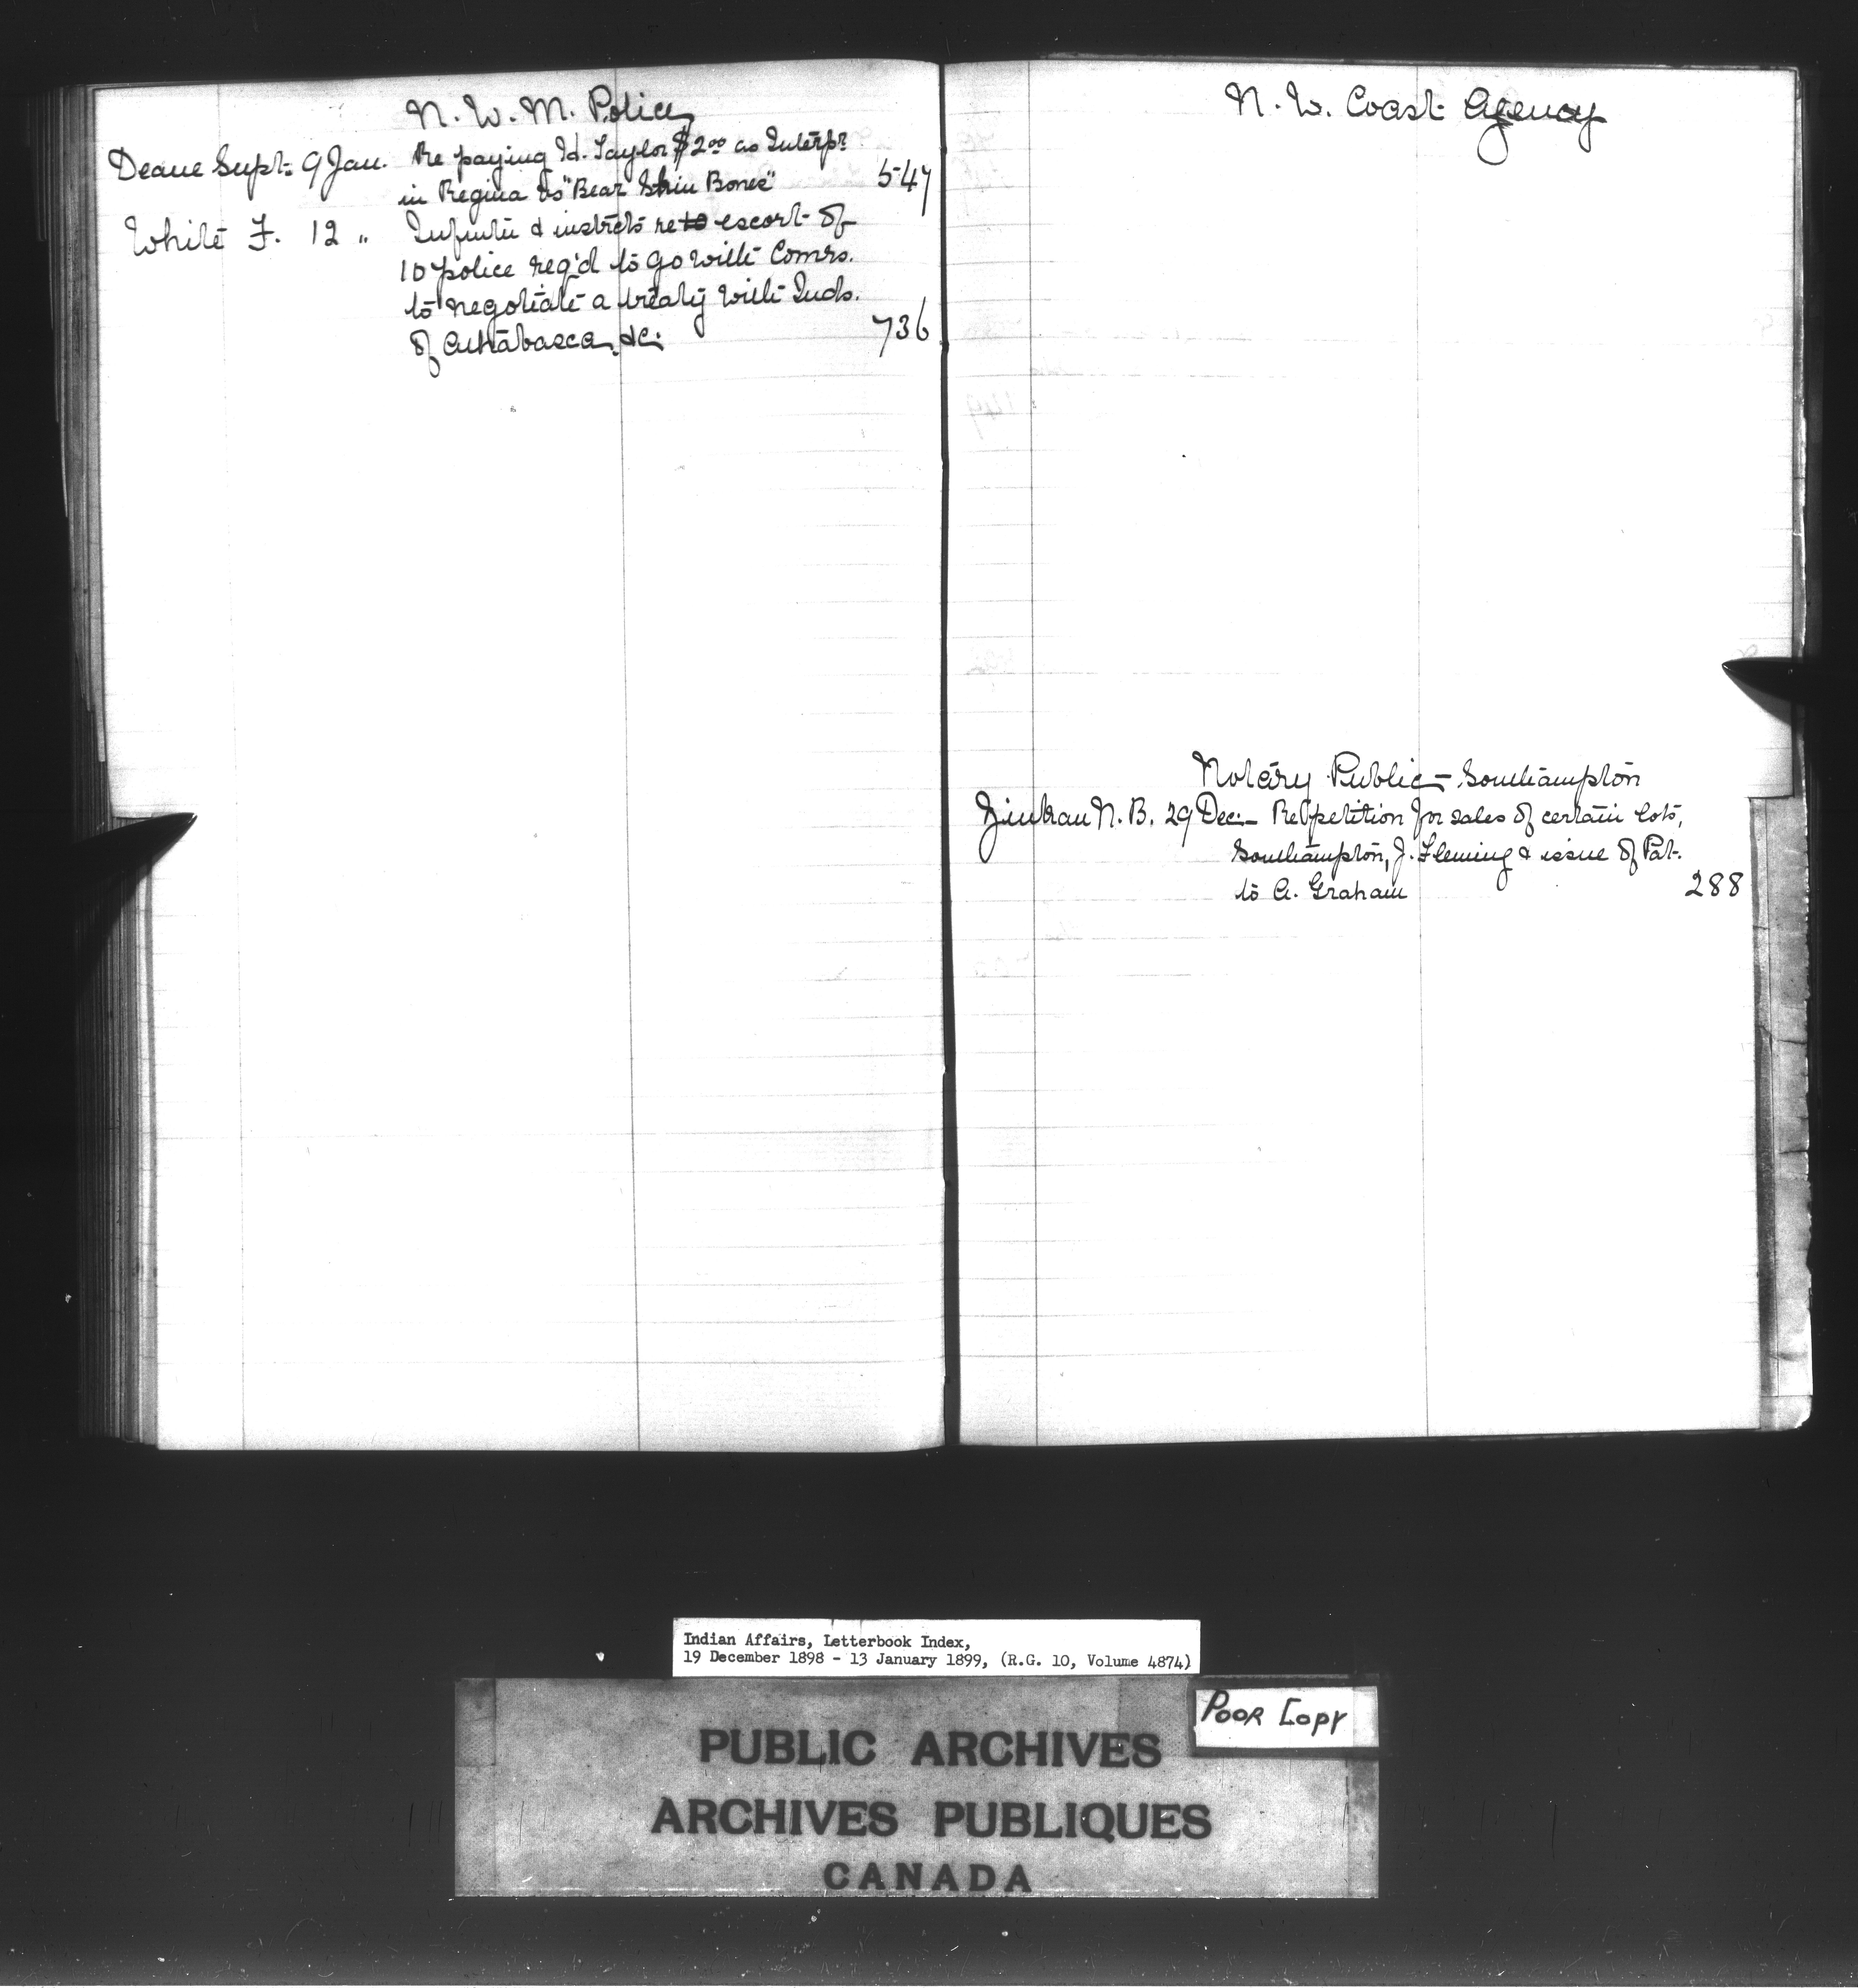 N. W. M. Police
Deane Supt. 9 Jan. Re paying Id. Taylor $2.00 as Interpr.
in Regina vs "Bear Shin Bones" 547
White F. 12 " Infmtn & instrcts re to escort of
10 police req'd to go with Comrs.
to negotiate a treaty with Inds.
of Athabasca, &c. 736
N. W. Coast Agency
Notary Public - Southampton
Zinkan N. B. 29 Dec. - Re petition for sales of certain lots,
Southampton, J. Fleming & issue of Pat.
to A. Graham 288
Indian Affairs, Letterbook Index,
19 December 1898 - 13 January 1899, (R.G. 10, Volume 4874)
POOR COPY
PUBLIC ARCHIVES
ARCHIVES PUBLIQUES
CANADA